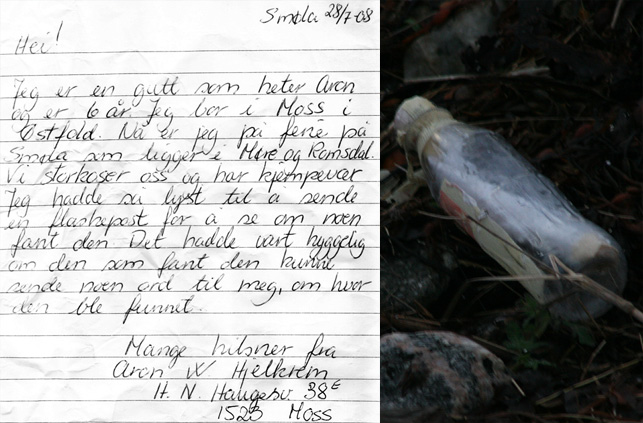 Smøla 28/7-08
Hei!
Jeg er en gutt som heter Aron
og er 6 år. Jeg bor i Moss i
Østfold. Nå er jeg på ferie på
Smøla som ligger i Møre og Romsdal.
Vi storkoser oss og har kjempevær
Jeg hadde så lyst til å sende
en flaskepost for å se om noen
fant den. Det hadde vært hyggelig
om den som fant den kunne
sende noen ord til meg, om hvor
den ble funnet.
Mange hilsner fra
Aron W Hjelkrem
H. N. Haugesv. 38E
1523 Moss